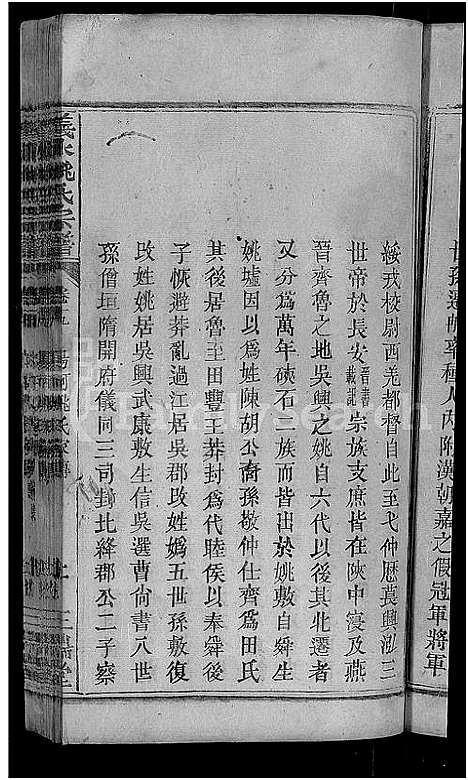 世孫遷䢸率種人內附漢朝嘉之假冠軍將軍
綏戎校尉西羌都督自此至弋仲歷萇興泓三
世帝於長安晉書載記宗族支庶皆在陝中寖及燕
晉齊魯之地吳興之姚自六代以後其北遷者
又分為萬年硤石二族而皆出於姚敷自舜生
姚墟因以為姓陳胡公裔孫敬仲仕齊為田氏
其後居魯至田豐王莽封為代睦侯以奉舜後
子恢避莽亂過江居吳郡改姓嬀五世孫敷復
改姓姚居吳興武康敷生信吳選曹尙書八世
孫僧垣隋開府儀同三司封北絳郡公二子察
義水姚氏宗譜 卷五 姚氏